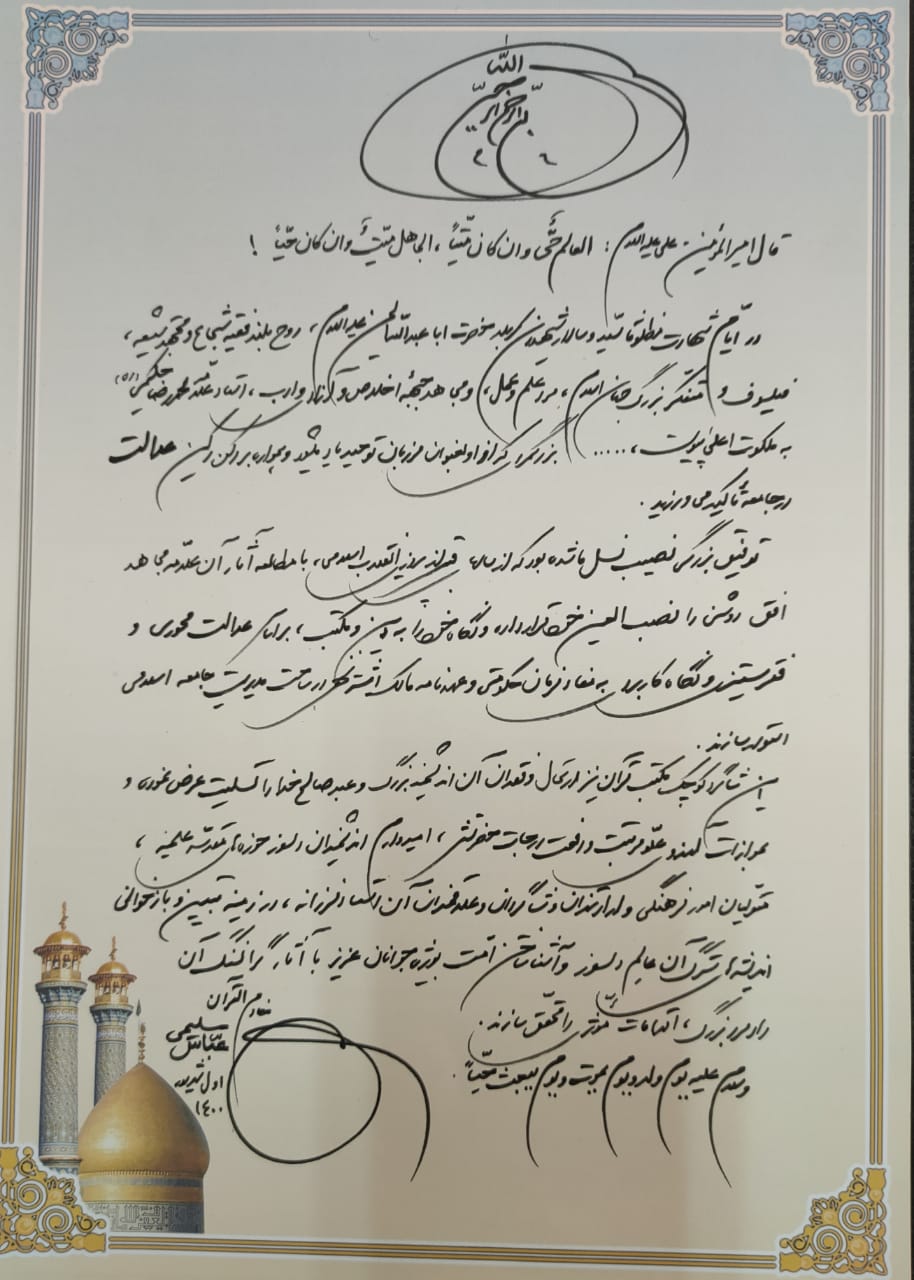 بسم الله الرحمن الرحیم
قال امیرالمؤمنین علی علیه السلام: العالم حیٌّ و ان کان میّتاً، الجاهل میّتٌ و ان کان حیّاً!
در ایّام شهادت مظلومانه سیّد و سالار شهیدان کربلا حضرت ابا عبدالله الحسین علیه السلام، روح بلند فقیه شجاع و مجتهد شیعه،
فیلسوف و متفکر بزرگ جهان اسلام، مرد علم و عمل، و مجاهد جبههٔ اخلاص و آزادی و ادب، استاد علّامه محمدرضا حکیمی (ره)
به ملکوت اعلیٰ پیوست، ..... بزرگمردی که از او به عنوان مرزبان توحید یاد میشود و همواره بر رکن رکین عدالت
در جامعه تأکید می ورزید.
توفیق بزرگی نصیب نسل ما شده بود که از سالهای قبل از پیروزی انقلاب اسلامی، با مطالعه آثار آن علّامه مجاهد
افق روشنی را نصب العین خود قرار داده و نگاه خود را به دین و مکتب، بر اساس عدالت محوری و
فقرستیزی و نگاه کاربردی به مفاد فرمان حکومتی و عهدنامه مالک اشتر نخعی در ساحت مدیریت جامعه اسلامی
استوار سازند.
این شاگرد کوچک مکتب قرآن نیز ارتحال و فقدان آن اندیشمند بزرگ و عبد صالح خدا را تسلیت عرض نموده و
به موازات علوّ مرتبت و رفعت درجات حضرتش، امیدوارم اندیشمندان دلسوز حوزه های مقدّسه علمیه،
متولّیان امور فرهنگی و ارادتمندان و شاگردان و علاقمندان آن استاد فرزانه، در زمینه تبیین و بازخوانی
اندیشه های سترگ آن عالم دلسوز و آشنا ساختن امّت بویژه جوانان عزیز با آثار گرانسنگ آن
رادمرد بزرگ، اقدامات مؤثّری را محقّق سازند.
وسلام علیه یوم ولد و یوم یموت و یوم یبعث حیّاً.
خادم القرآن
عبّاس سلیمی
اول شهریور
۱۴۰۰